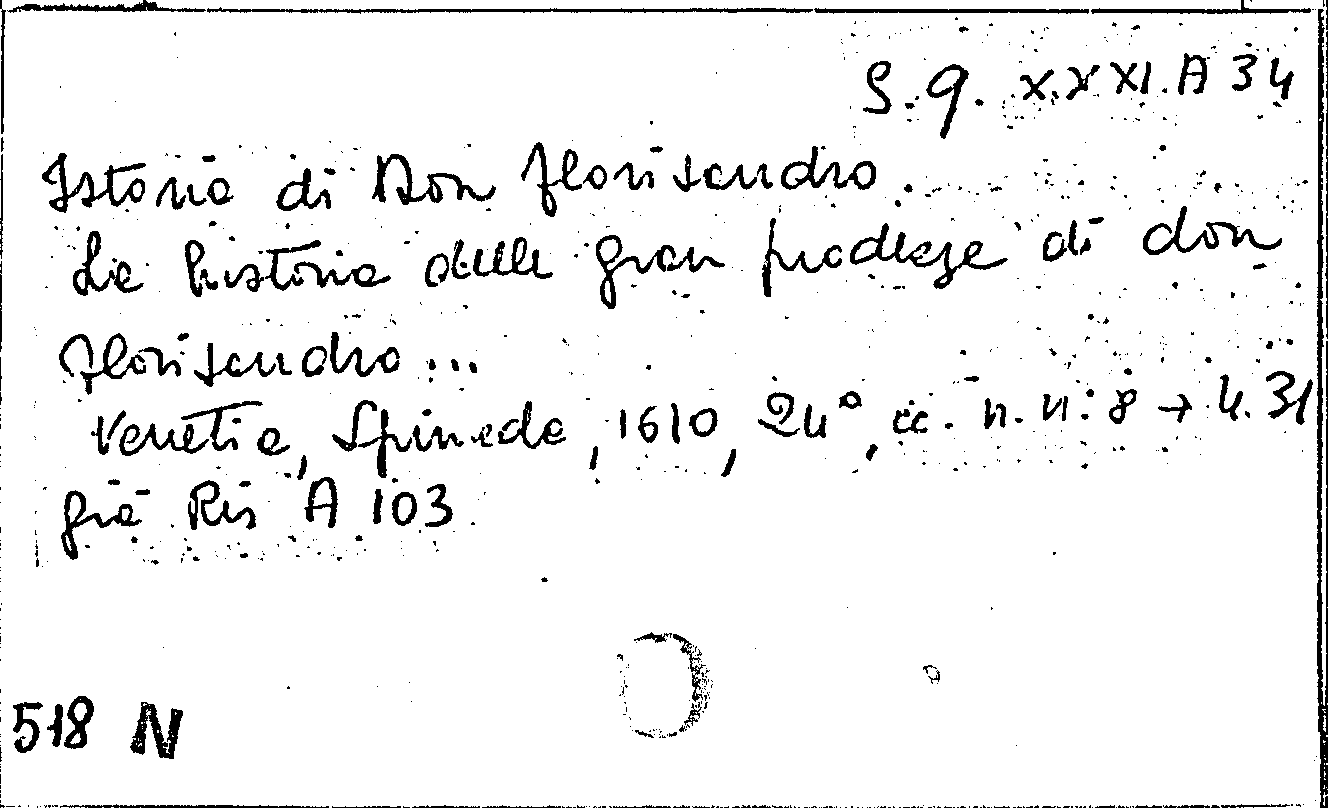 S.q. XXXI.A 34
Istoria di Don Florisandro.
La historia delle gran prodezze di don
Florisandro...
Venetia, Spineda, 1610, 24°, cc. n.n. 8 → 4.31
già Ris A 103
518 N